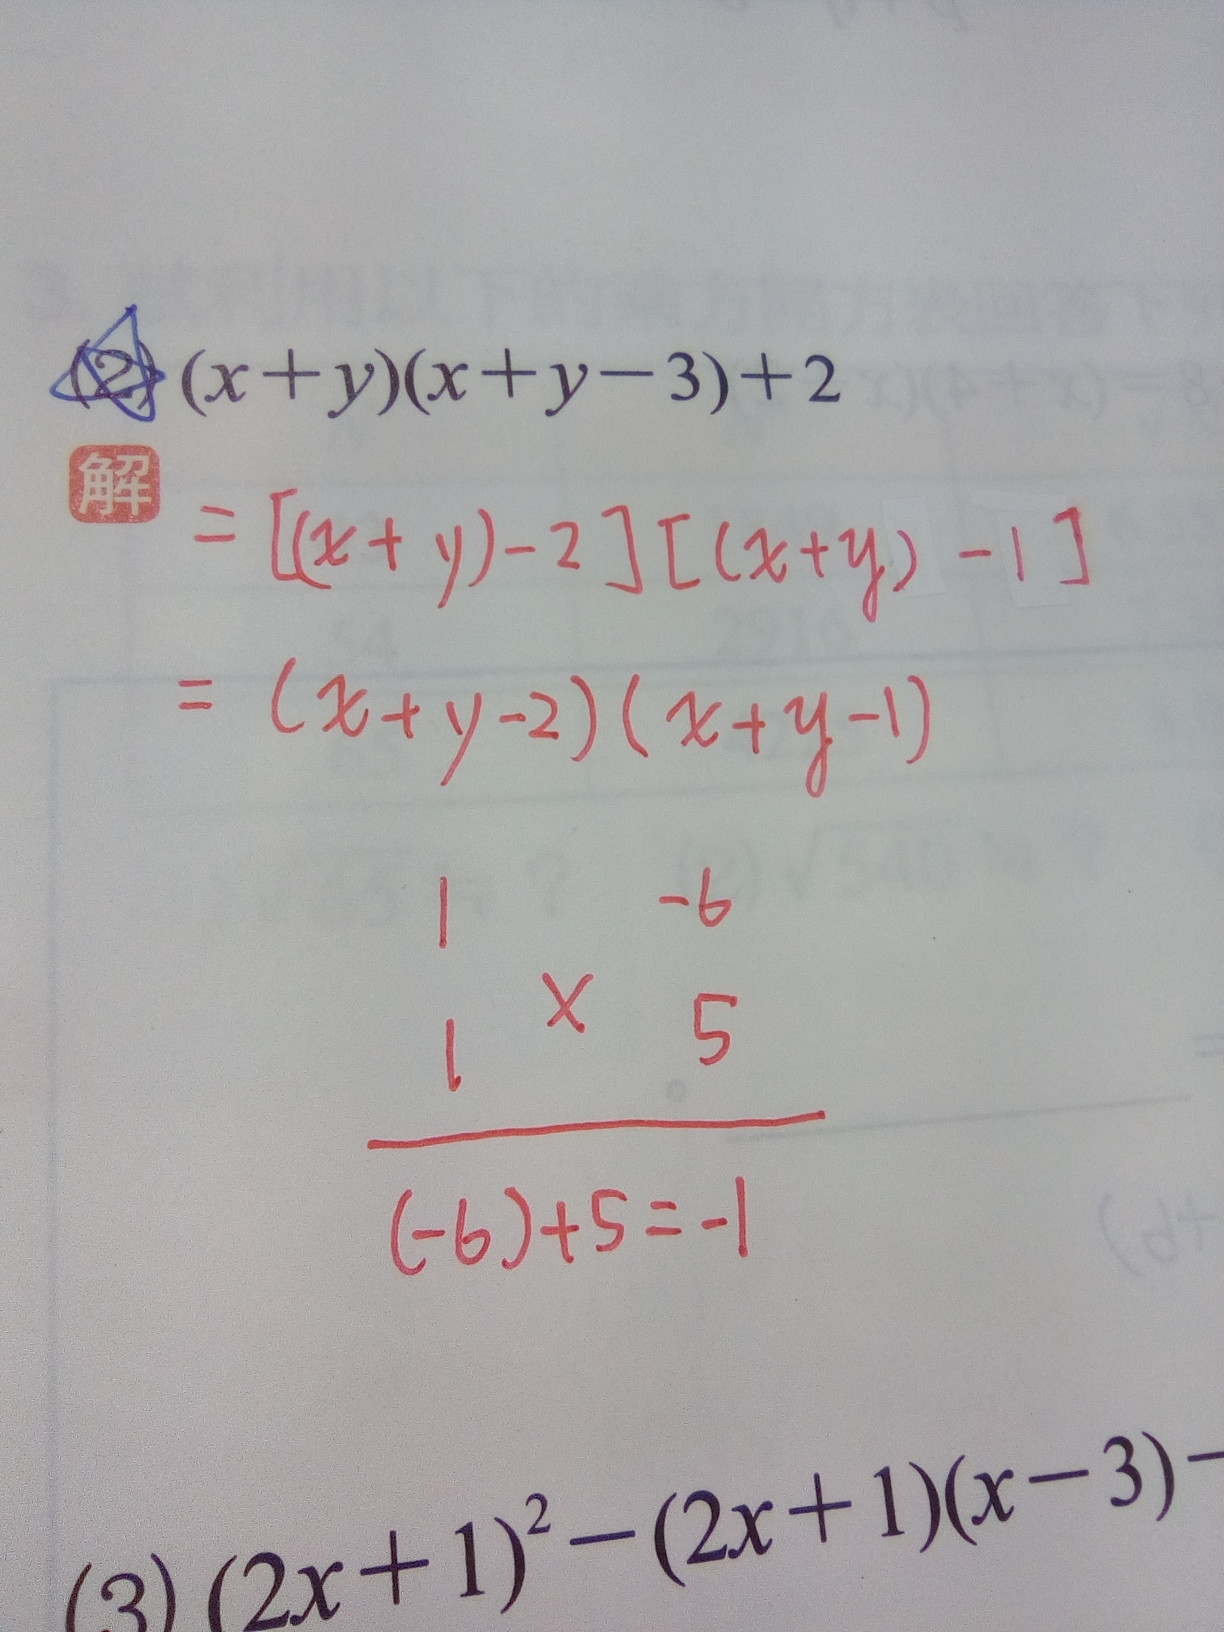 (2) (x+y)(x+y-3)+2
解
= [(x+y)-2][(x+y)-1]
= (x+y-2)(x+y-1)
1 -6
×
1 5
(-6)+5=-1
(3) (2x+1)²-(2x+1)(x-3)-